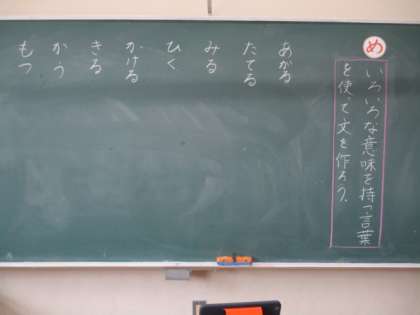 め
いろいろな意味を持つ言葉
を使って文を作ろう。
あがる
たてる
みる
ひく
かける
きる
かう
もつ